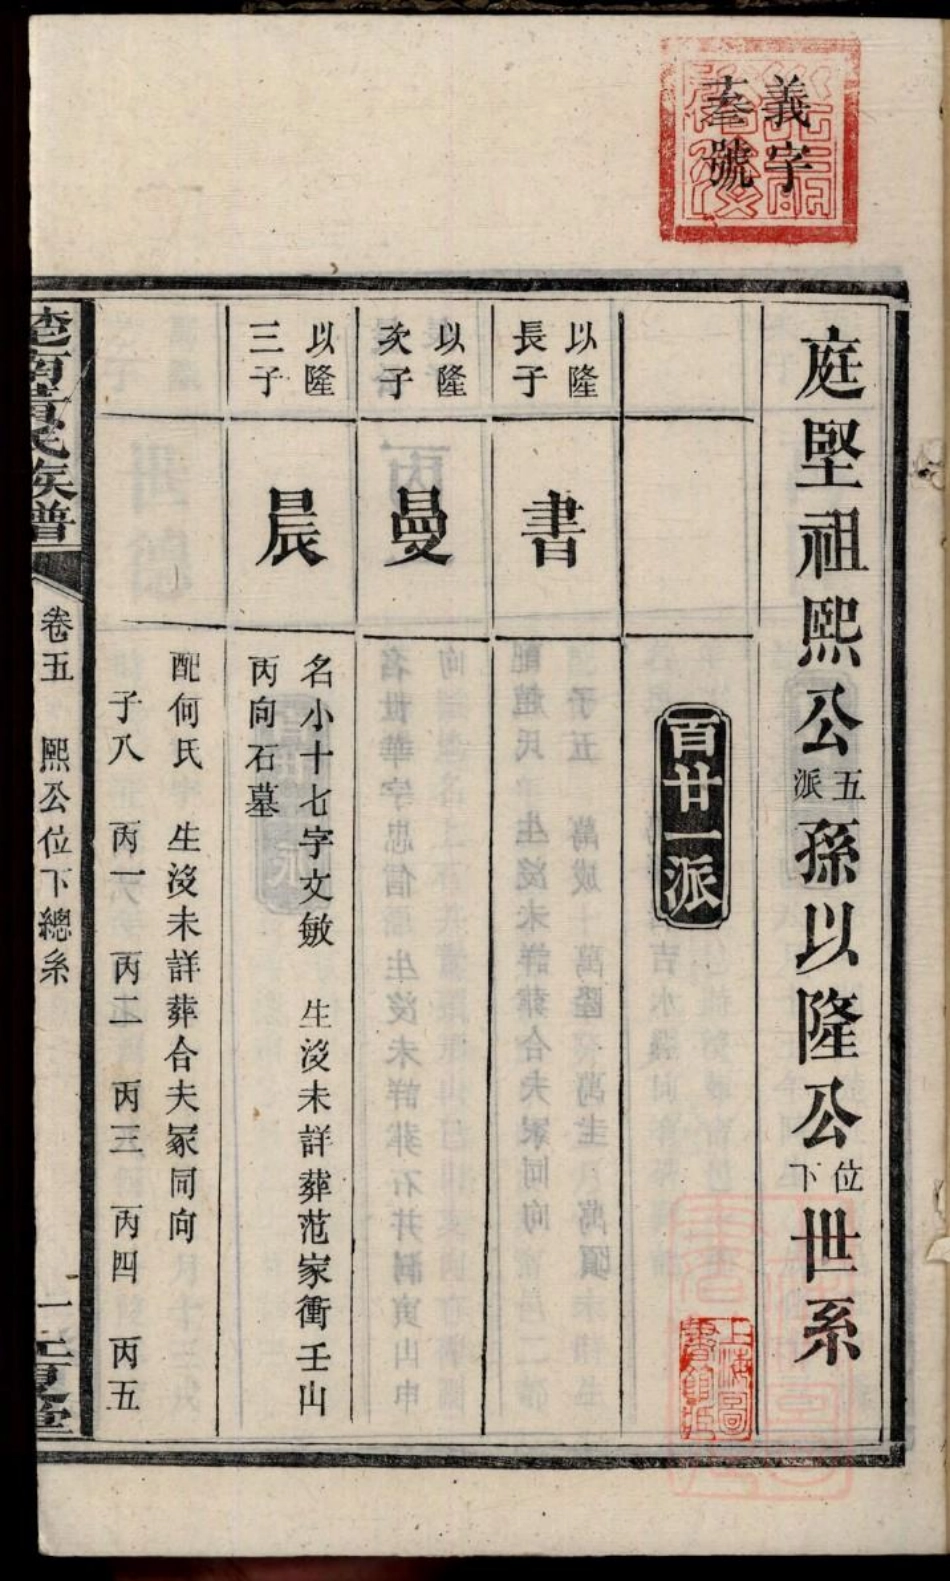 義字
叁號
庭堅祖熙公五派孫以隆公位下世系
百廿一派
以隆
長子
書
以隆
次子
曼
以隆
三子
晨
名小十七字文敏 生沒未詳葬范家衝壬山
丙向石墓
配何氏 生沒未詳葬合夫冢同向
子八 丙一 丙二 丙三 丙四 丙五
族譜
卷五 熙公位下總系 一
上海圖
書館藏